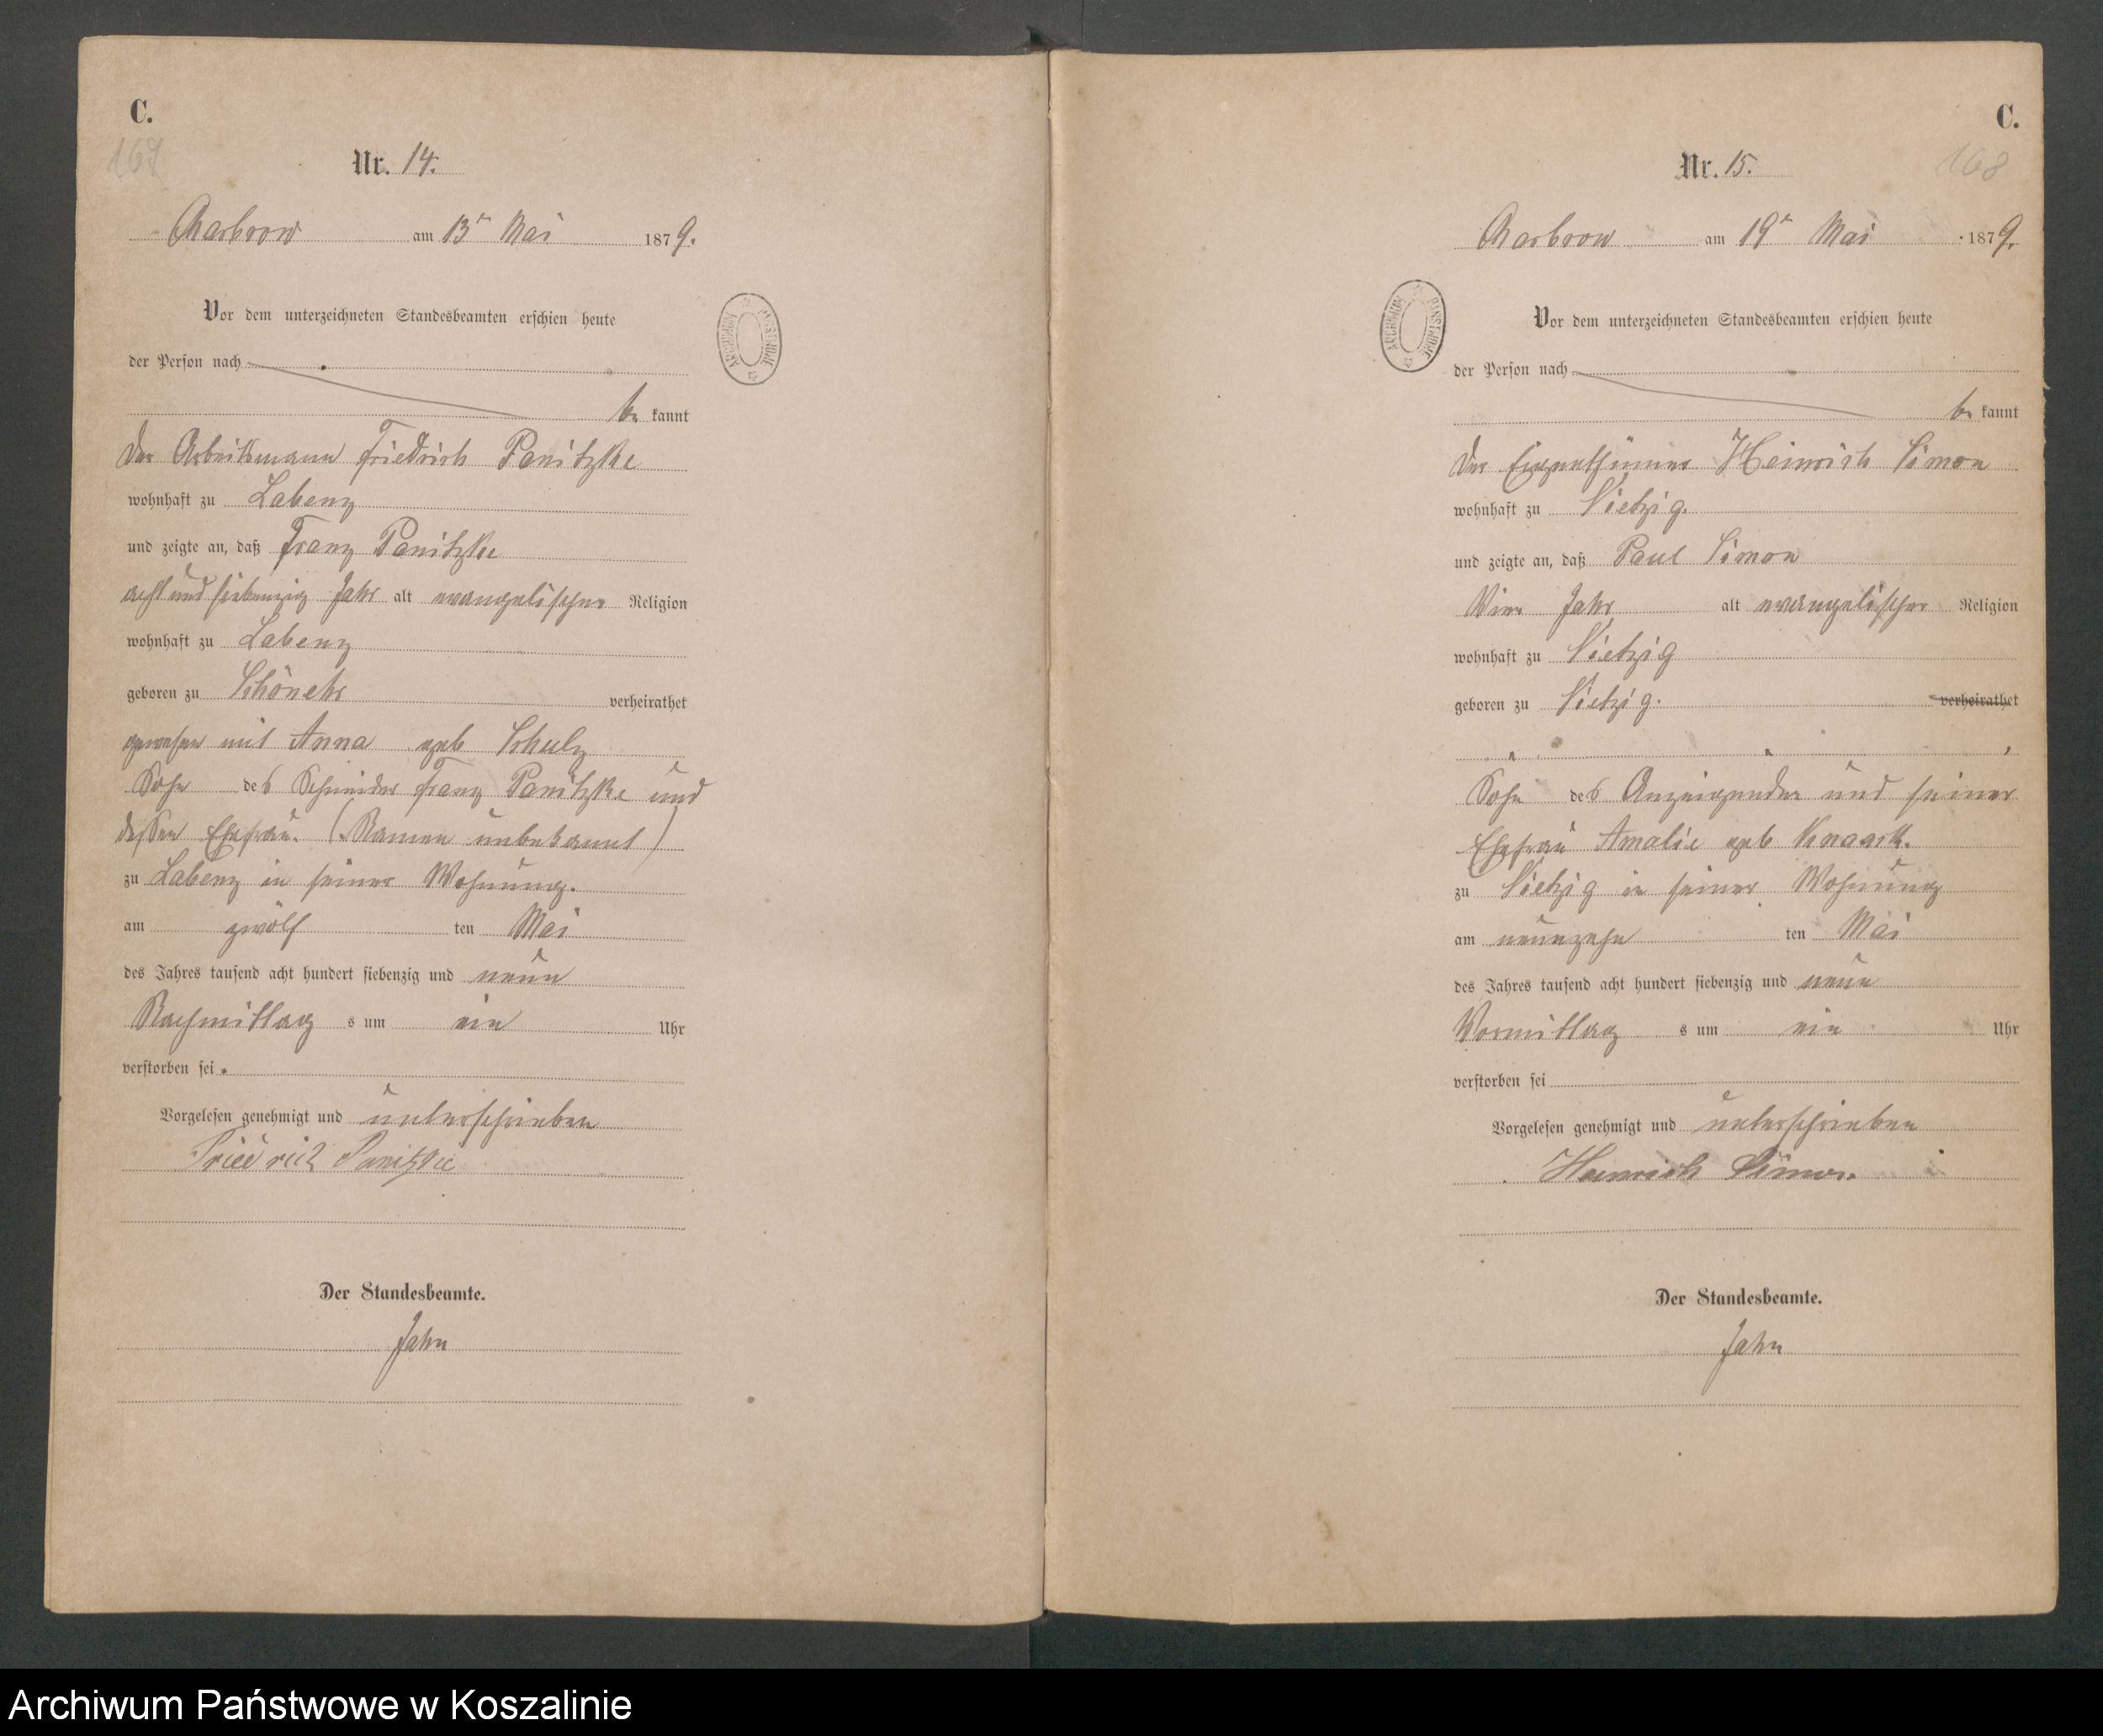 C.
167
Nr. 14.
Charbrow am 13ten Mai 1879.
Vor dem unterzeichneten Standesbeamten erschien heute
der Person nach
be kannt
der Arbeitsmann Friedrich Panitzke
wohnhaft zu Labenz
und zeigte an, daß Franz Panitzke
acht und siebenzig Jahr alt evangelischer Religion
wohnhaft zu Labenz
geboren zu Schönehr verheirathet
gewesen mit Anna geb Schulz
Sohn des Schneider Franz Panitzke und
dessen Ehefrau. (Namen unbekannt)
zu Labenz in seiner Wohnung.
am zwölf ten Mai
des Jahres tausend acht hundert siebenzig und neun
Nachmittag s um ein Uhr
verstorben sei.
Vorgelesen genehmigt und unterschrieben
Friedrich Panitzke
Der Standesbeamte.
Jahn
C.
168
Nr. 15.
Charbrow am 19ten Mai 1879.
ARCHIWUM PAŃSTWOWE
ARCHIWUM PAŃSTWOWE
Vor dem unterzeichneten Standesbeamten erschien heute
der Person nach
be kannt
der Eigenthümer Heinrich Simon
wohnhaft zu Vietzig.
und zeigte an, daß Paul Simon
Vier Jahr alt evangelischer Religion
wohnhaft zu Vietzig
geboren zu Vietzig. verheirathet
Sohn des Anzeigenden und seiner
Ehefrau Amalie geb Knaack.
zu Vietzig in seiner Wohnung
am neunzehn ten Mai
des Jahres tausend acht hundert siebenzig und neun
Vormittag s um ein Uhr
verstorben sei
Vorgelesen genehmigt und unterschrieben
Heinrich Simon.
Der Standesbeamte.
Jahn
Archiwum Państwowe w Koszalinie